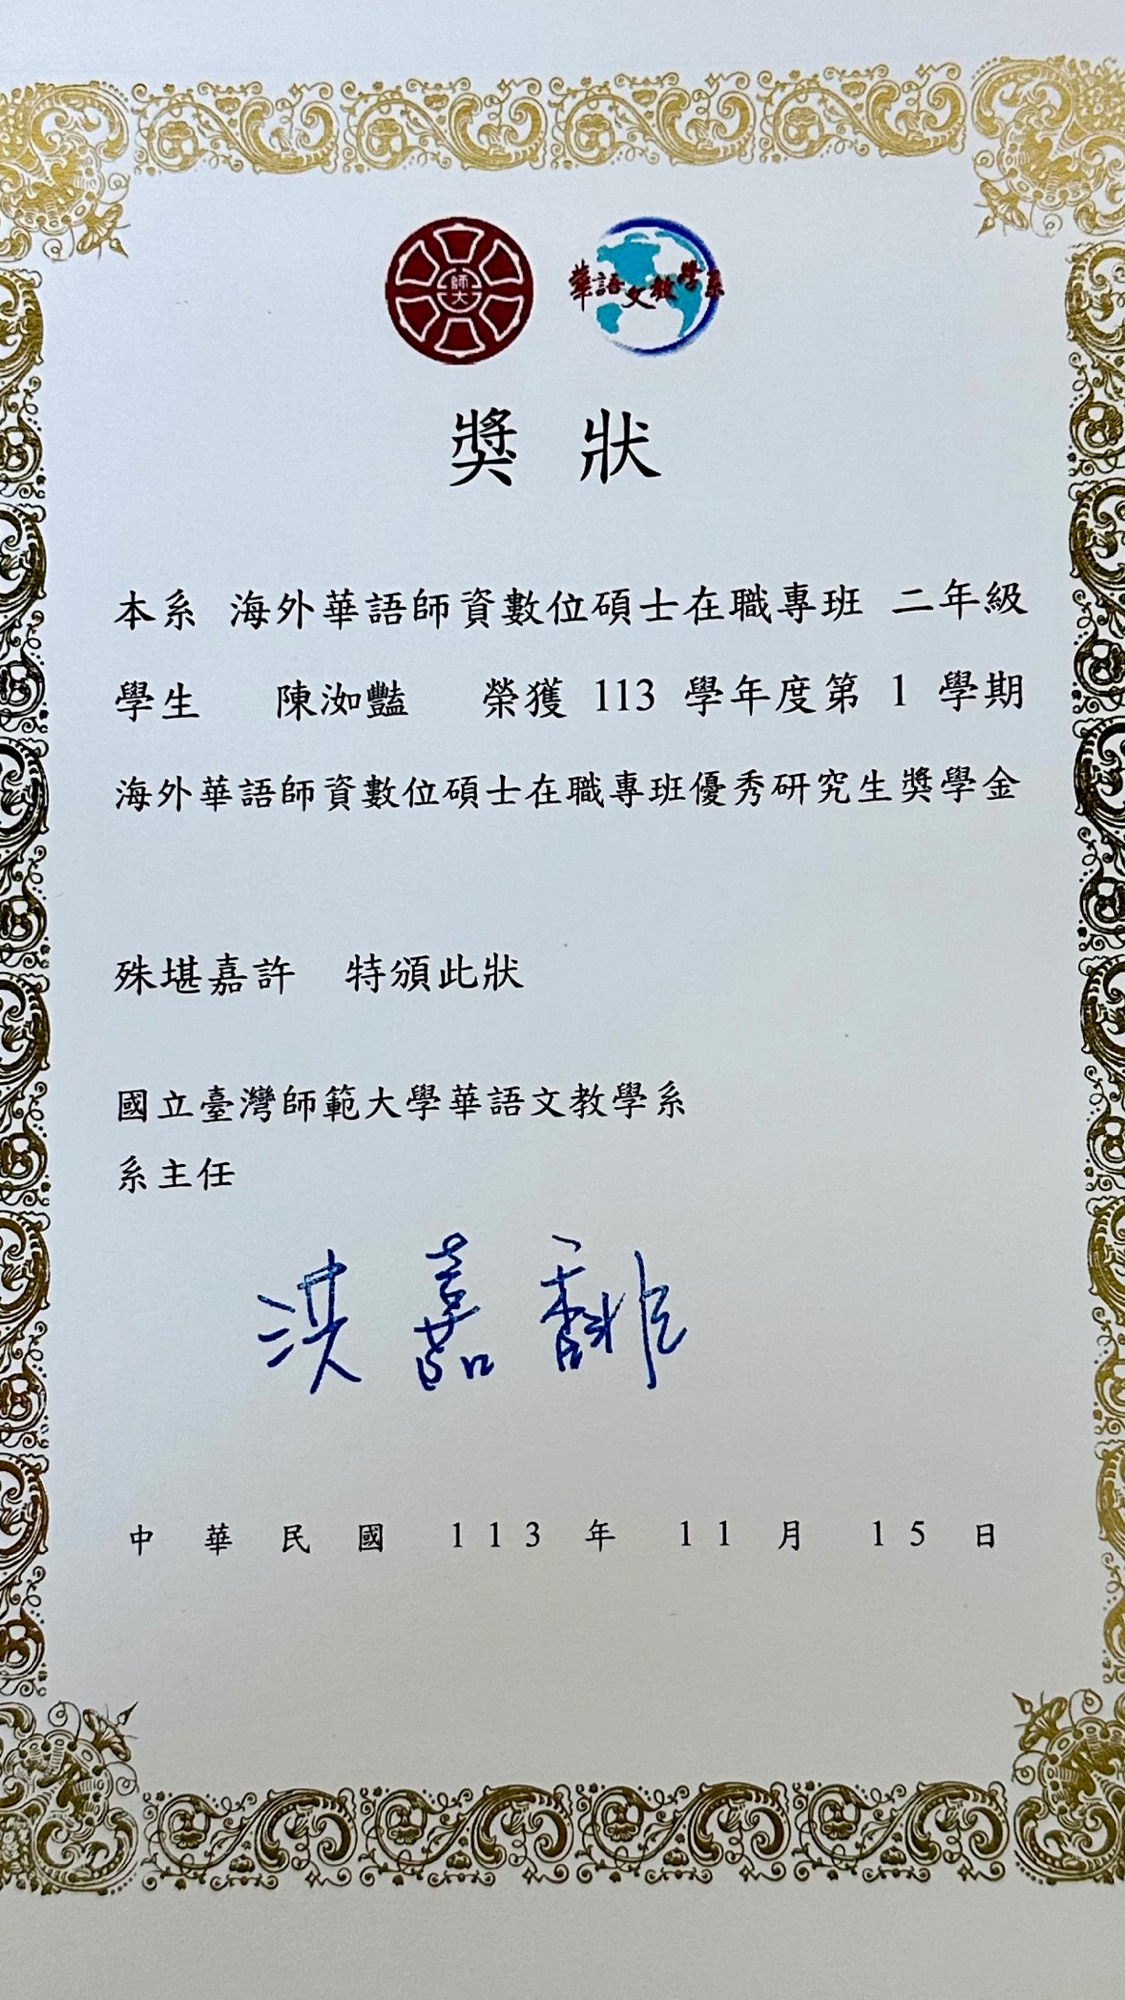 師大
華語文教學系
獎狀
本系 海外華語師資數位碩士在職專班 二年級
學生 陳洳豔 榮獲 113 學年度第 1 學期
海外華語師資數位碩士在職專班優秀研究生獎學金
殊堪嘉許 特頒此狀
國立臺灣師範大學華語文教學系
系主任
洪嘉馡
中華民國 113 年 11 月 15 日